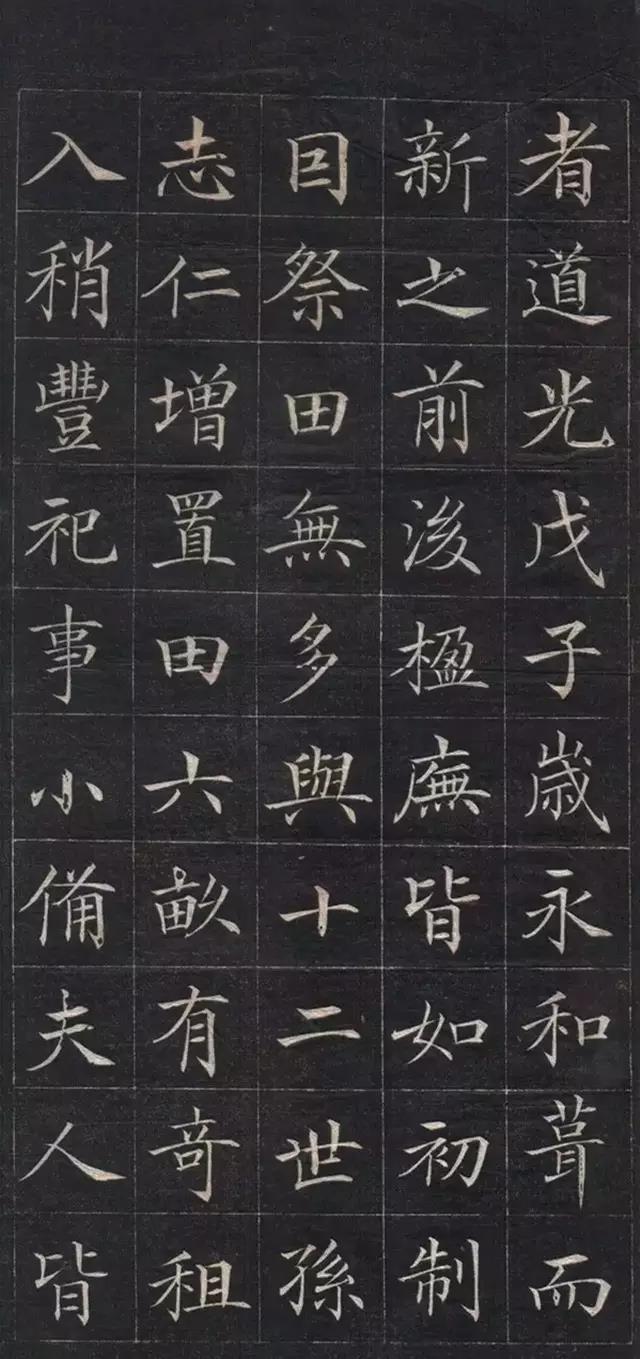 者道光戊子歳永和葺而
新之前後楹廡皆如初制
因祭田無多與十二世孫
志仁增置田六畝有奇租
入稍豐祀事小備夫人皆